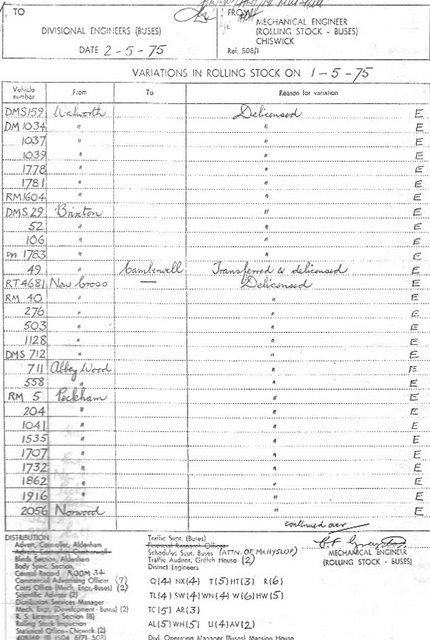 TO
FROM
DIVISIONAL ENGINEERS (BUSES)
MECHANICAL ENGINEER
(ROLLING STOCK - BUSES)
CHISWICK
DATE 2-5-75
Ref. 508/1
VARIATIONS IN ROLLING STOCK ON 1-5-75
Vehicle number From To Reason for variation
DMS159 Walworth Delicensed E
DM1034 " " E
1037 " " E
1039 " " E
1778 " " E
1781 " " E
RM1604 " " E
DMS 29 Brixton " E
52 " " E
106 " " E
DM 1783 " " E
49 " Camberwell Transferred & delicensed E
RT4681 New Cross — Delicensed E
RM 40 " " E
276 " " E
503 " " E
1128 " " E
DMS 712 " " E
711 Abbey Wood " E
558 " " E
RM 5 Peckham " E
204 " " E
1041 " " E
1535 " " E
1707 " " E
1732 " " E
1862 " " E
1916 " " E
2056 Norwood " E
continued over
DISTRIBUTION
Advert. Controller, Aldenham
Blinds Section, Aldenham
Body Spec. Section
Central Record ROOM 34
Commercial Advertising Officer (7)
Costs Office (Mech. Engr. Buses) (2)
Scientific Adviser (2)
Distribution Services Manager
Mech. Engr. (Development - Buses) (2)
R. S. Licensing Section (8)
Rolling Stock Inspection
Statistical Office - Chiswick (2)
Traffic Supt. (Buses)
Financial Research Officer
Schedules Supt. Buses (ATTN. OF MR HYSLOP)
Traffic Auditor, Griffith House (2)
District Engineers
Q(4) NX(4) T(5) HT(3) R(6)
TL(4) SW(4) WN(4) W(6) HW(5)
TC(5) AR(3)
AL(5) WH(5) U(4) AV(2)
Divl. Operating Manager (Buses) Mansion House
MECHANICAL ENGINEER
(ROLLING STOCK - BUSES)